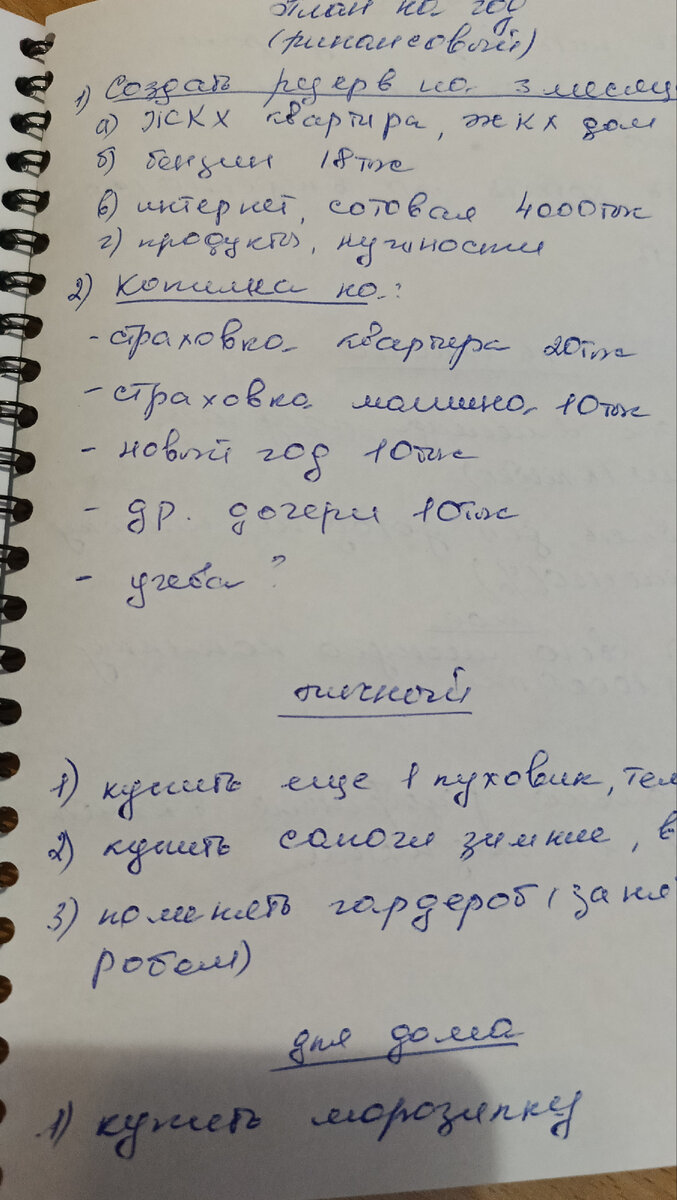 План на год
(финансовый)
1) Создать резерв на 3 месяц
а) ЖКХ квартира, жкх дом
б) бензин 18тыс
в) интернет, сотовая 4000тыс
г) продукты, нужности
2) Копилка на:
- страховка квартира 20тыс
- страховка машина 10тыс
- новый год 10тыс
- др. дочери 10тыс
- учеба ?
личной
1) купить еще 1 пуховик, тем
2) купить сапоги зимние, в
3) поменять гардероб (заня
робом)
для дома
1) купить морозилку